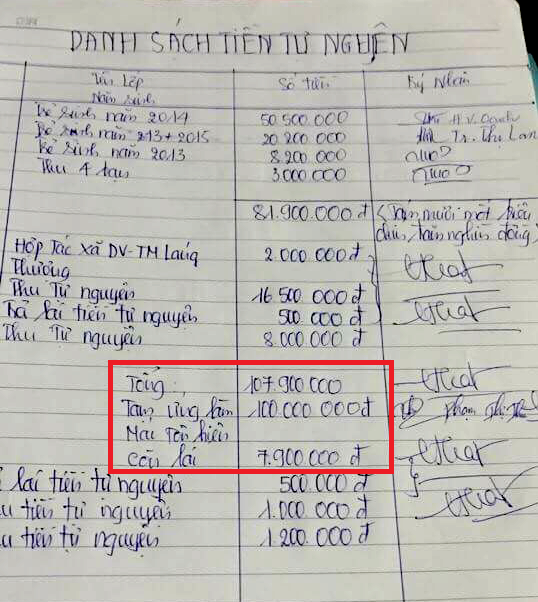 DANH SÁCH TIỀN TỰ NGUYỆN
Tên Lớp Số tiền Ký Nhận
Năm sinh
Bé sinh năm 2014 50 500 000
Bé sinh năm 213+2015 20 200 000 Tr. Thị Lan
Bé sinh năm 2013 8 200 000
Thu 4 bạn 3 000 000
81.900.000đ (Tám mươi mốt triệu
chín trăm nghìn đồng)
Hợp Tác Xã DV-TM Laúq 2.000 000đ
Thưởng
Thu Tự nguyện 16 500 000đ
Trả lãi tiền tự nguyện 500 000đ
Thu Tự nguyện 8.000 000đ
Tổng: 107.900 000
Tạm ứng lần 100.000 000đ Phạm
Mái Tôn hiên
Còn lại 7.900.000 đ
lãi tiền tự nguyện 500.000 đ
u tiền tự nguyện 1.000.000 đ
u tiền tự nguyện 1 200 000 đ